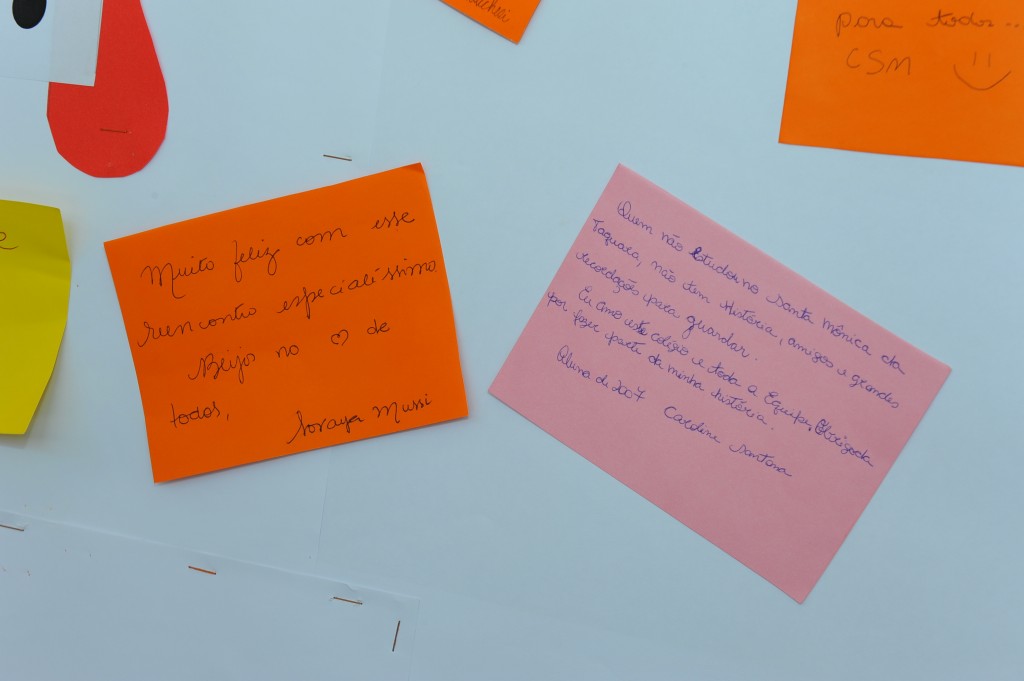 para todos...
CSM
Muito feliz com esse
reencontro especialíssimo.
Beijos no ♡ de
todos,
Soraya Mussi
Quem não estudou no Santa Mônica da
Taquara, não tem história, amigos e grandes
recordações para guardar.
Eu amo este colégio e toda a Equipe, Obrigada
por fazer parte da minha história.
Aluna de 2007 Caroline Santana